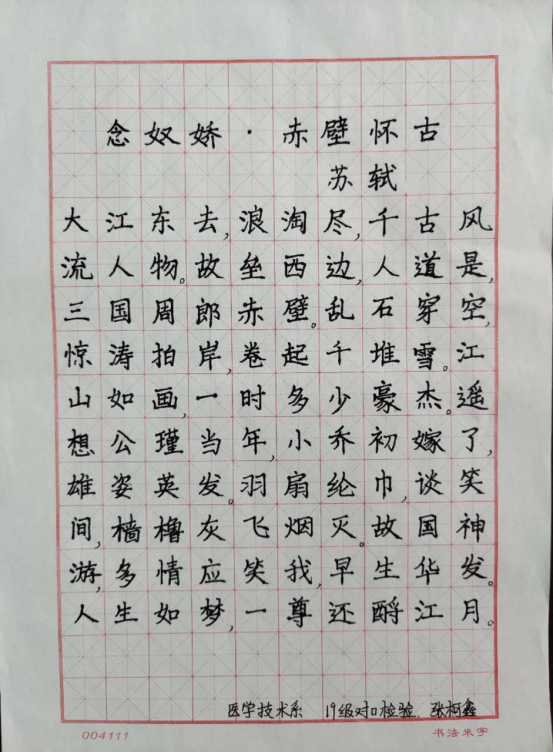 念奴娇·赤壁怀古
苏轼
大江东去,浪淘尽,千古风
流人物。故垒西边,人道是,
三国周郎赤壁。乱石穿空,
惊涛拍岸,卷起千堆雪。江
山如画,一时多少豪杰。遥
想公瑾当年,小乔初嫁了,
雄姿英发。羽扇纶巾,谈笑
间,樯橹灰飞烟灭。故国神
游,多情应笑我,早生华发。
人生如梦,一尊还酹江月。
医学技术系 19级对口检验 张柯鑫
004111 书法米字